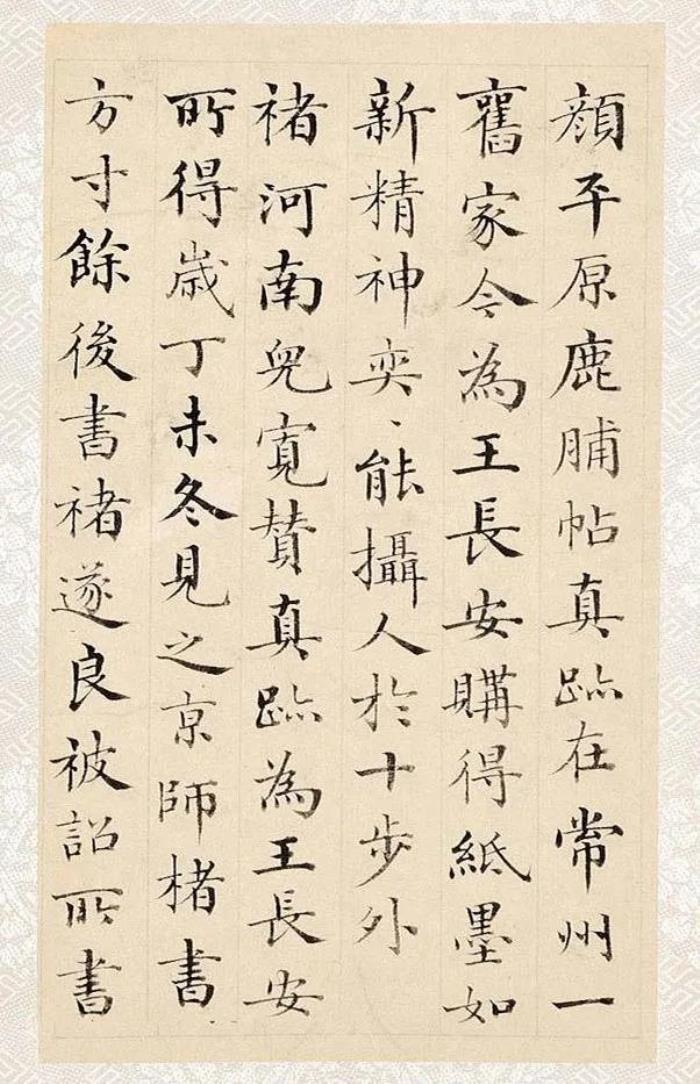 顔平原鹿脯帖真跡在常州一
舊家今為王長安購得紙墨如
新精神奕、能攝人於十步外
褚河南兒寬贊真跡為王長安
所得歲丁未冬見之京師楮書
方寸餘後書褚遂良被詔所書